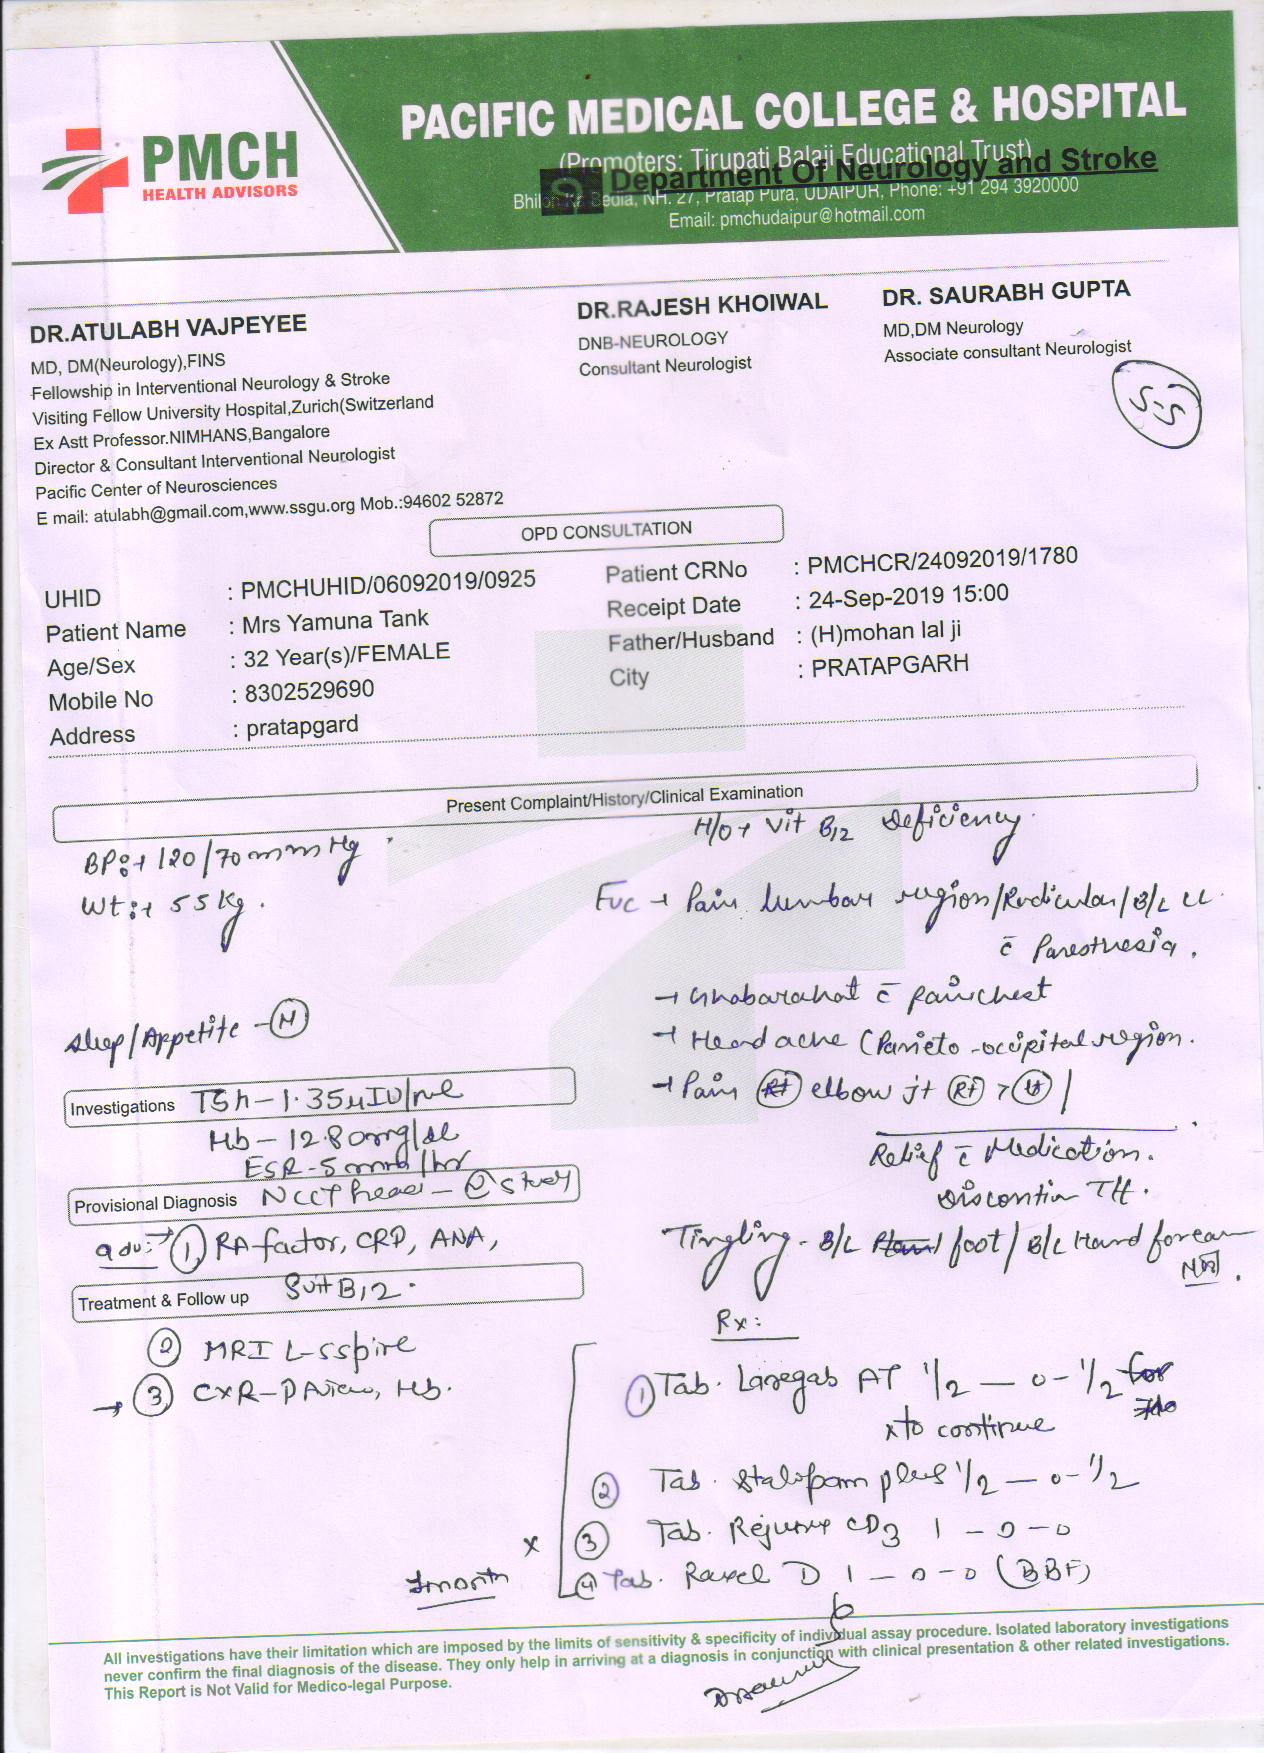 PMCH
HEALTH ADVISORS
PACIFIC MEDICAL COLLEGE & HOSPITAL
(Promoters: Tirupati Balaji Educational Trust)
Department Of Neurology and Stroke
Bhilo Ka Bedla, NH. 27, Pratap Pura, UDAIPUR, Phone: +91 294 3920000
Email: pmchudaipur@hotmail.com
DR.ATULABH VAJPEYEE
MD, DM(Neurology),FINS
Fellowship in Interventional Neurology & Stroke
Visiting Fellow University Hospital,Zurich(Switzerland
Ex Astt Professor.NIMHANS,Bangalore
Director & Consultant Interventional Neurologist
Pacific Center of Neurosciences
E mail: atulabh@gmail.com,www.ssgu.org Mob.:94602 52872
DR.RAJESH KHOIWAL
DNB-NEUROLOGY
Consultant Neurologist
DR. SAURABH GUPTA
MD,DM Neurology
Associate consultant Neurologist
OPD CONSULTATION
UHID : PMCHUHID/06092019/0925
Patient Name : Mrs Yamuna Tank
Age/Sex : 32 Year(s)/FEMALE
Mobile No : 8302529690
Address : pratapgard
Patient CRNo : PMCHCR/24092019/1780
Receipt Date : 24-Sep-2019 15:00
Father/Husband : (H)mohan lal ji
City : PRATAPGARH
Present Complaint/History/Clinical Examination
BP:→ 120/70 mmHg
Wt:→ 55 kg.
Sleep/Appetite - N
H/o → Vit B12 Deficiency.
→ Pain lumbar region/Radicular/B/L LL
c̄ Paresthesia.
→ Ghabarahat c̄ pain chest
→ Headache (Parieto-occipital region.
→ Pain elbow jt Rt > Lt /
Relief c̄ Medication.
Tingling - B/L foot / B/L Hand
Investigations TSH - 1.35 µIU/ml
Hb - 12.80 mg/dl
ESR - 5 mm/hr
Provisional Diagnosis NCCT head - study
adv:→ 1) RA factor, CRP, ANA,
Treatment & Follow up B12.
2 MRI L-S spine
→ 3 CXR-PA view, Hb.
Rx:
1 Tab. AT 1/2 — 0 - 1/2
x to continue
2 Tab. Stalopam plus 1/2 — 0 - 1/2
3 Tab. CD3 1 - 0 - 0
4 Tab. D 1 - 0 - 0 (BBF)
x
1 month
All investigations have their limitation which are imposed by the limits of sensitivity & specificity of individual assay procedure. Isolated laboratory investigations
never confirm the final diagnosis of the disease. They only help in arriving at a diagnosis in conjunction with clinical presentation & other related investigations.
This Report is Not Valid for Medico-legal Purpose.